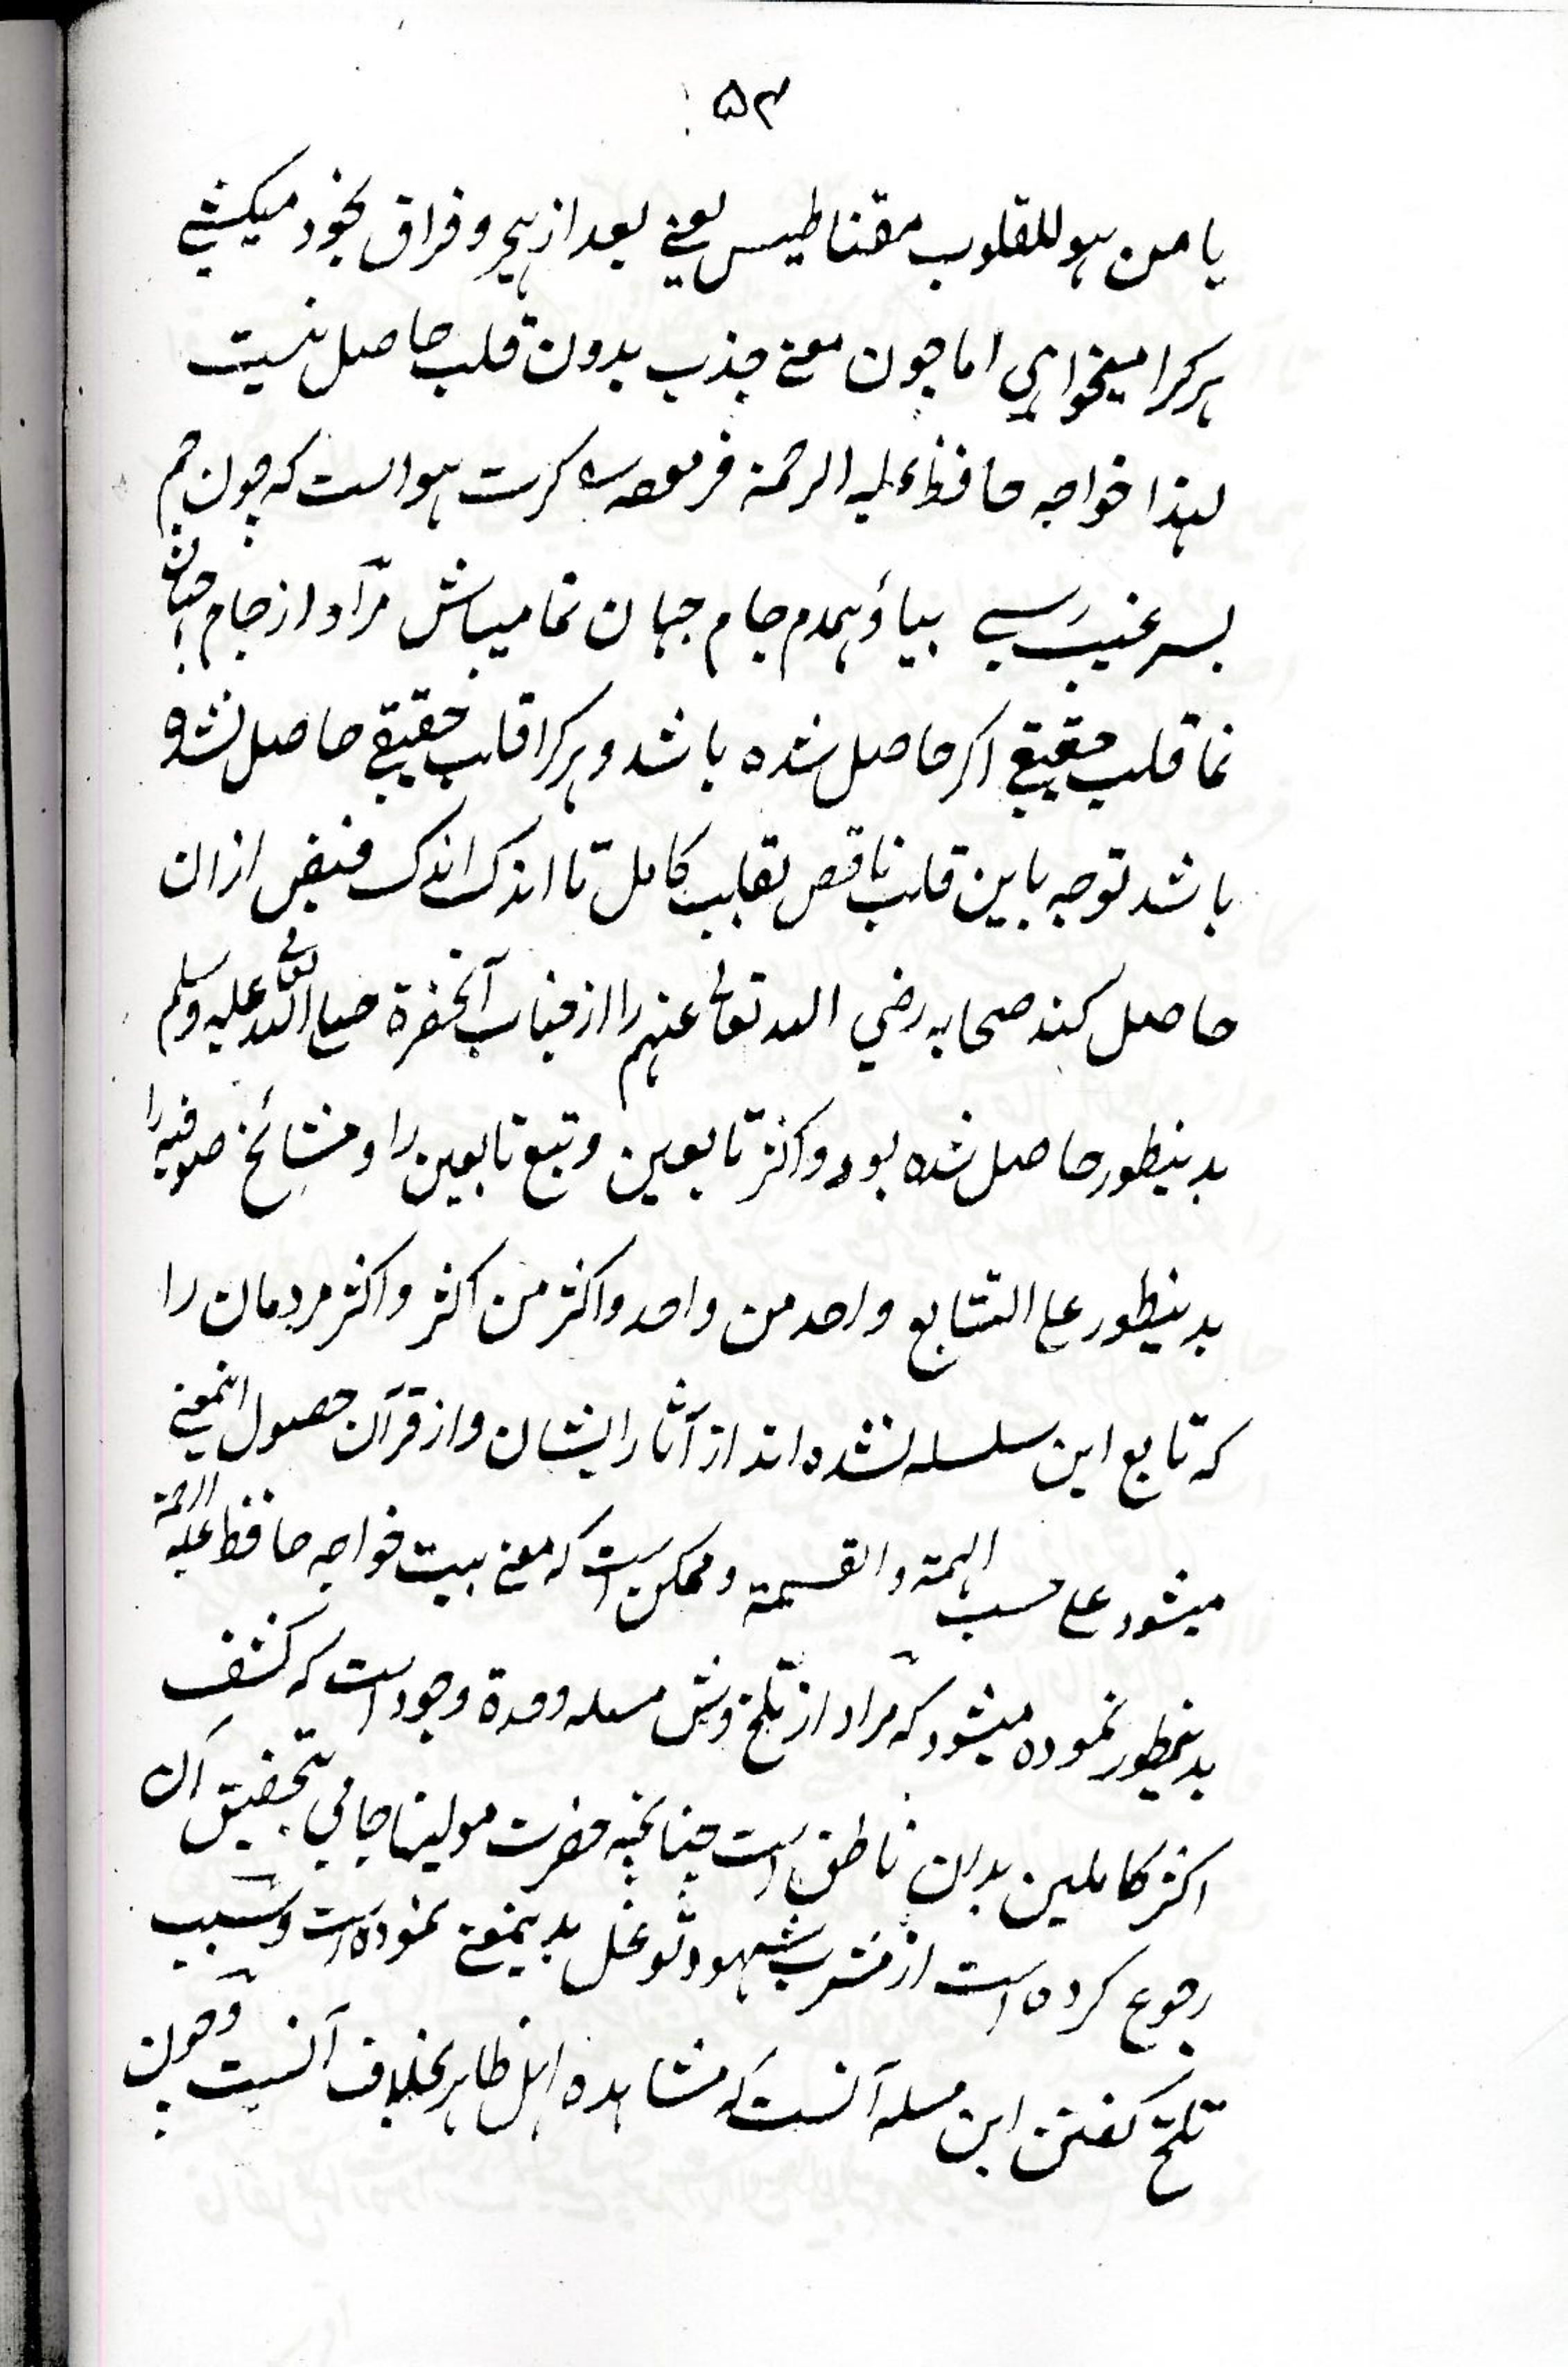 ۵۴
یا من ہو للقلوب مقناطیس یعنے بعد از ہجر و فراق بخود میکشے
ہرکرا میخواہی اما چون معنے جذب بدون قلب حاصل نیست
لہذا خواجہ حافظ علیہ الرحمۃ فرمودہ کرت ہواست کہ چون جم
بسر غیب رسے بیاؤ ہمدم جام جہان نما میباش مرآد از جام جہان
نما قلب حقیقے اکر حاصل شدہ باشد و ہرکرا قلب حقیقے حاصل نشدہ
باشد توجہ باین قلب ناقص بقلب کامل تا اندک اندک فیض ازان
حاصل کند صحابہ رضي اللہ تعالے عنہم را از جناب آنحضرۃ صلے اللہ تعالے علیہ وسلم
بدینطور حاصل شدہ بود و اکثر تابعین و تبع تابعین را و مشائخ صوفیہ را
بدینطور علے التتابع واحد من واحد و اکثر من اکثر و اکثر مردمان را
کہ تابع این سلسلہ نشدہ اند از آثار ایشان و از قرآن حصول اینمعنے
میشود علے حسب الہمۃ و القسیمۃ و ممکن است کہ معنے بیت خواجہ حافظ علیہ الرحمۃ
بدینطور نمودہ میشود کہ مراد از تلخ وش مسلہ وحدۃ وجود است کہ کشف
اکثر کاملین بدان ناطق است چنانچہ حضرت مولینا جامي بتحقیق آن
رجوع کردہ است از مشرب شہود توغل بدینمعنے نمودہ است و سبب
تلخ کفتن این مسلہ آنست کہ مشاہدہ اہل ظاہر بخلاف آنست و چون